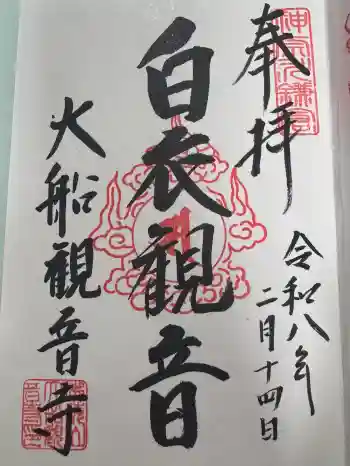 奉拝
令和八年
二月十四日
白衣観音
大船観音寺